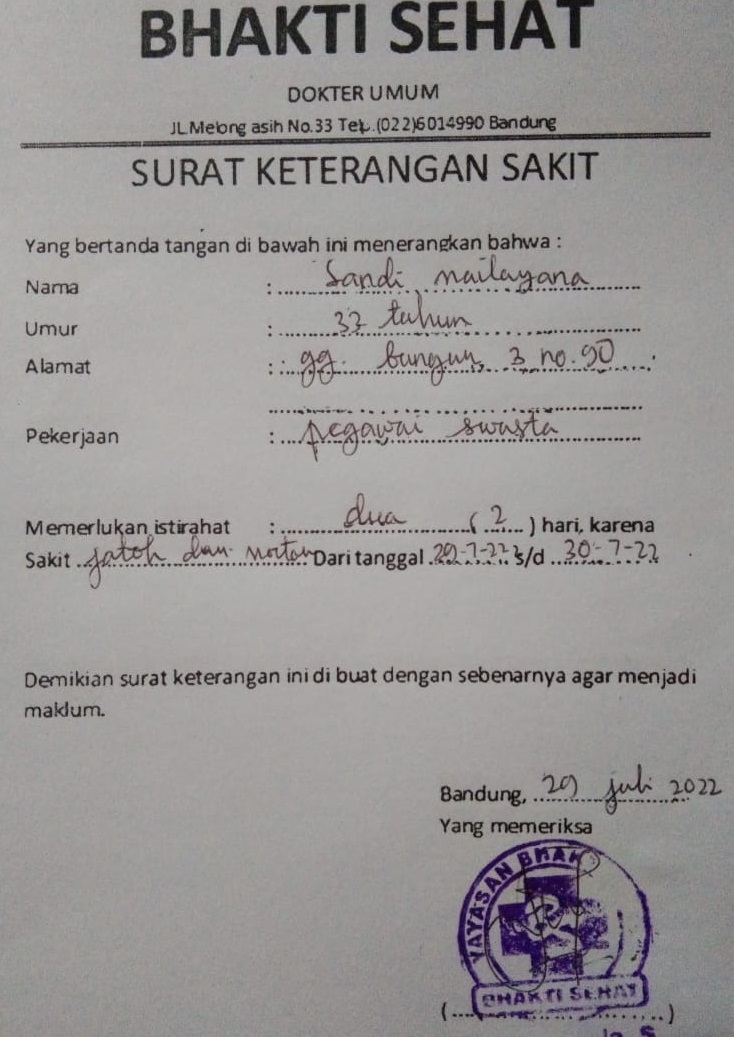 BHAKTI SEHAT
DOKTER UMUM
JL.Melong asih No.33 Tel.(022)6014990 Bandung
SURAT KETERANGAN SAKIT
Yang bertanda tangan di bawah ini menerangkan bahwa :
Nama : Sandi mailayana
Umur : 33 tahun
Alamat : gg. bangun 3 no. 90
Pekerjaan : pegawai swasta
Memerlukan istirahat : dua ( 2 ) hari, karena
Sakit jatoh dan Dari tanggal 29-7-22 s/d 30-7-22
Demikian surat keterangan ini di buat dengan sebenarnya agar menjadi
maklum.
Bandung, 29 juli 2022
Yang memeriksa
YAYASAN BHAK
BHAKTI SEHAT
(....................)